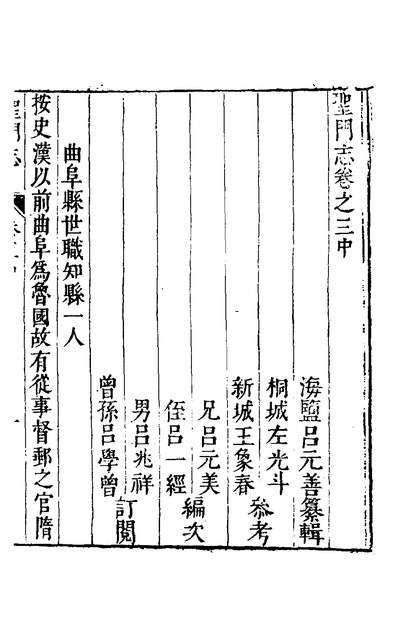 聖門志卷之三中
海鹽呂元善纂輯
桐城左光斗
新城王象春
參考
兄呂元美
侄呂一經
編次
男呂兆祥
曾孫呂學曾
訂閱
曲阜縣世職知縣一人
按史漢以前曲阜爲魯國故有從事督郵之官隋
聖門志
一